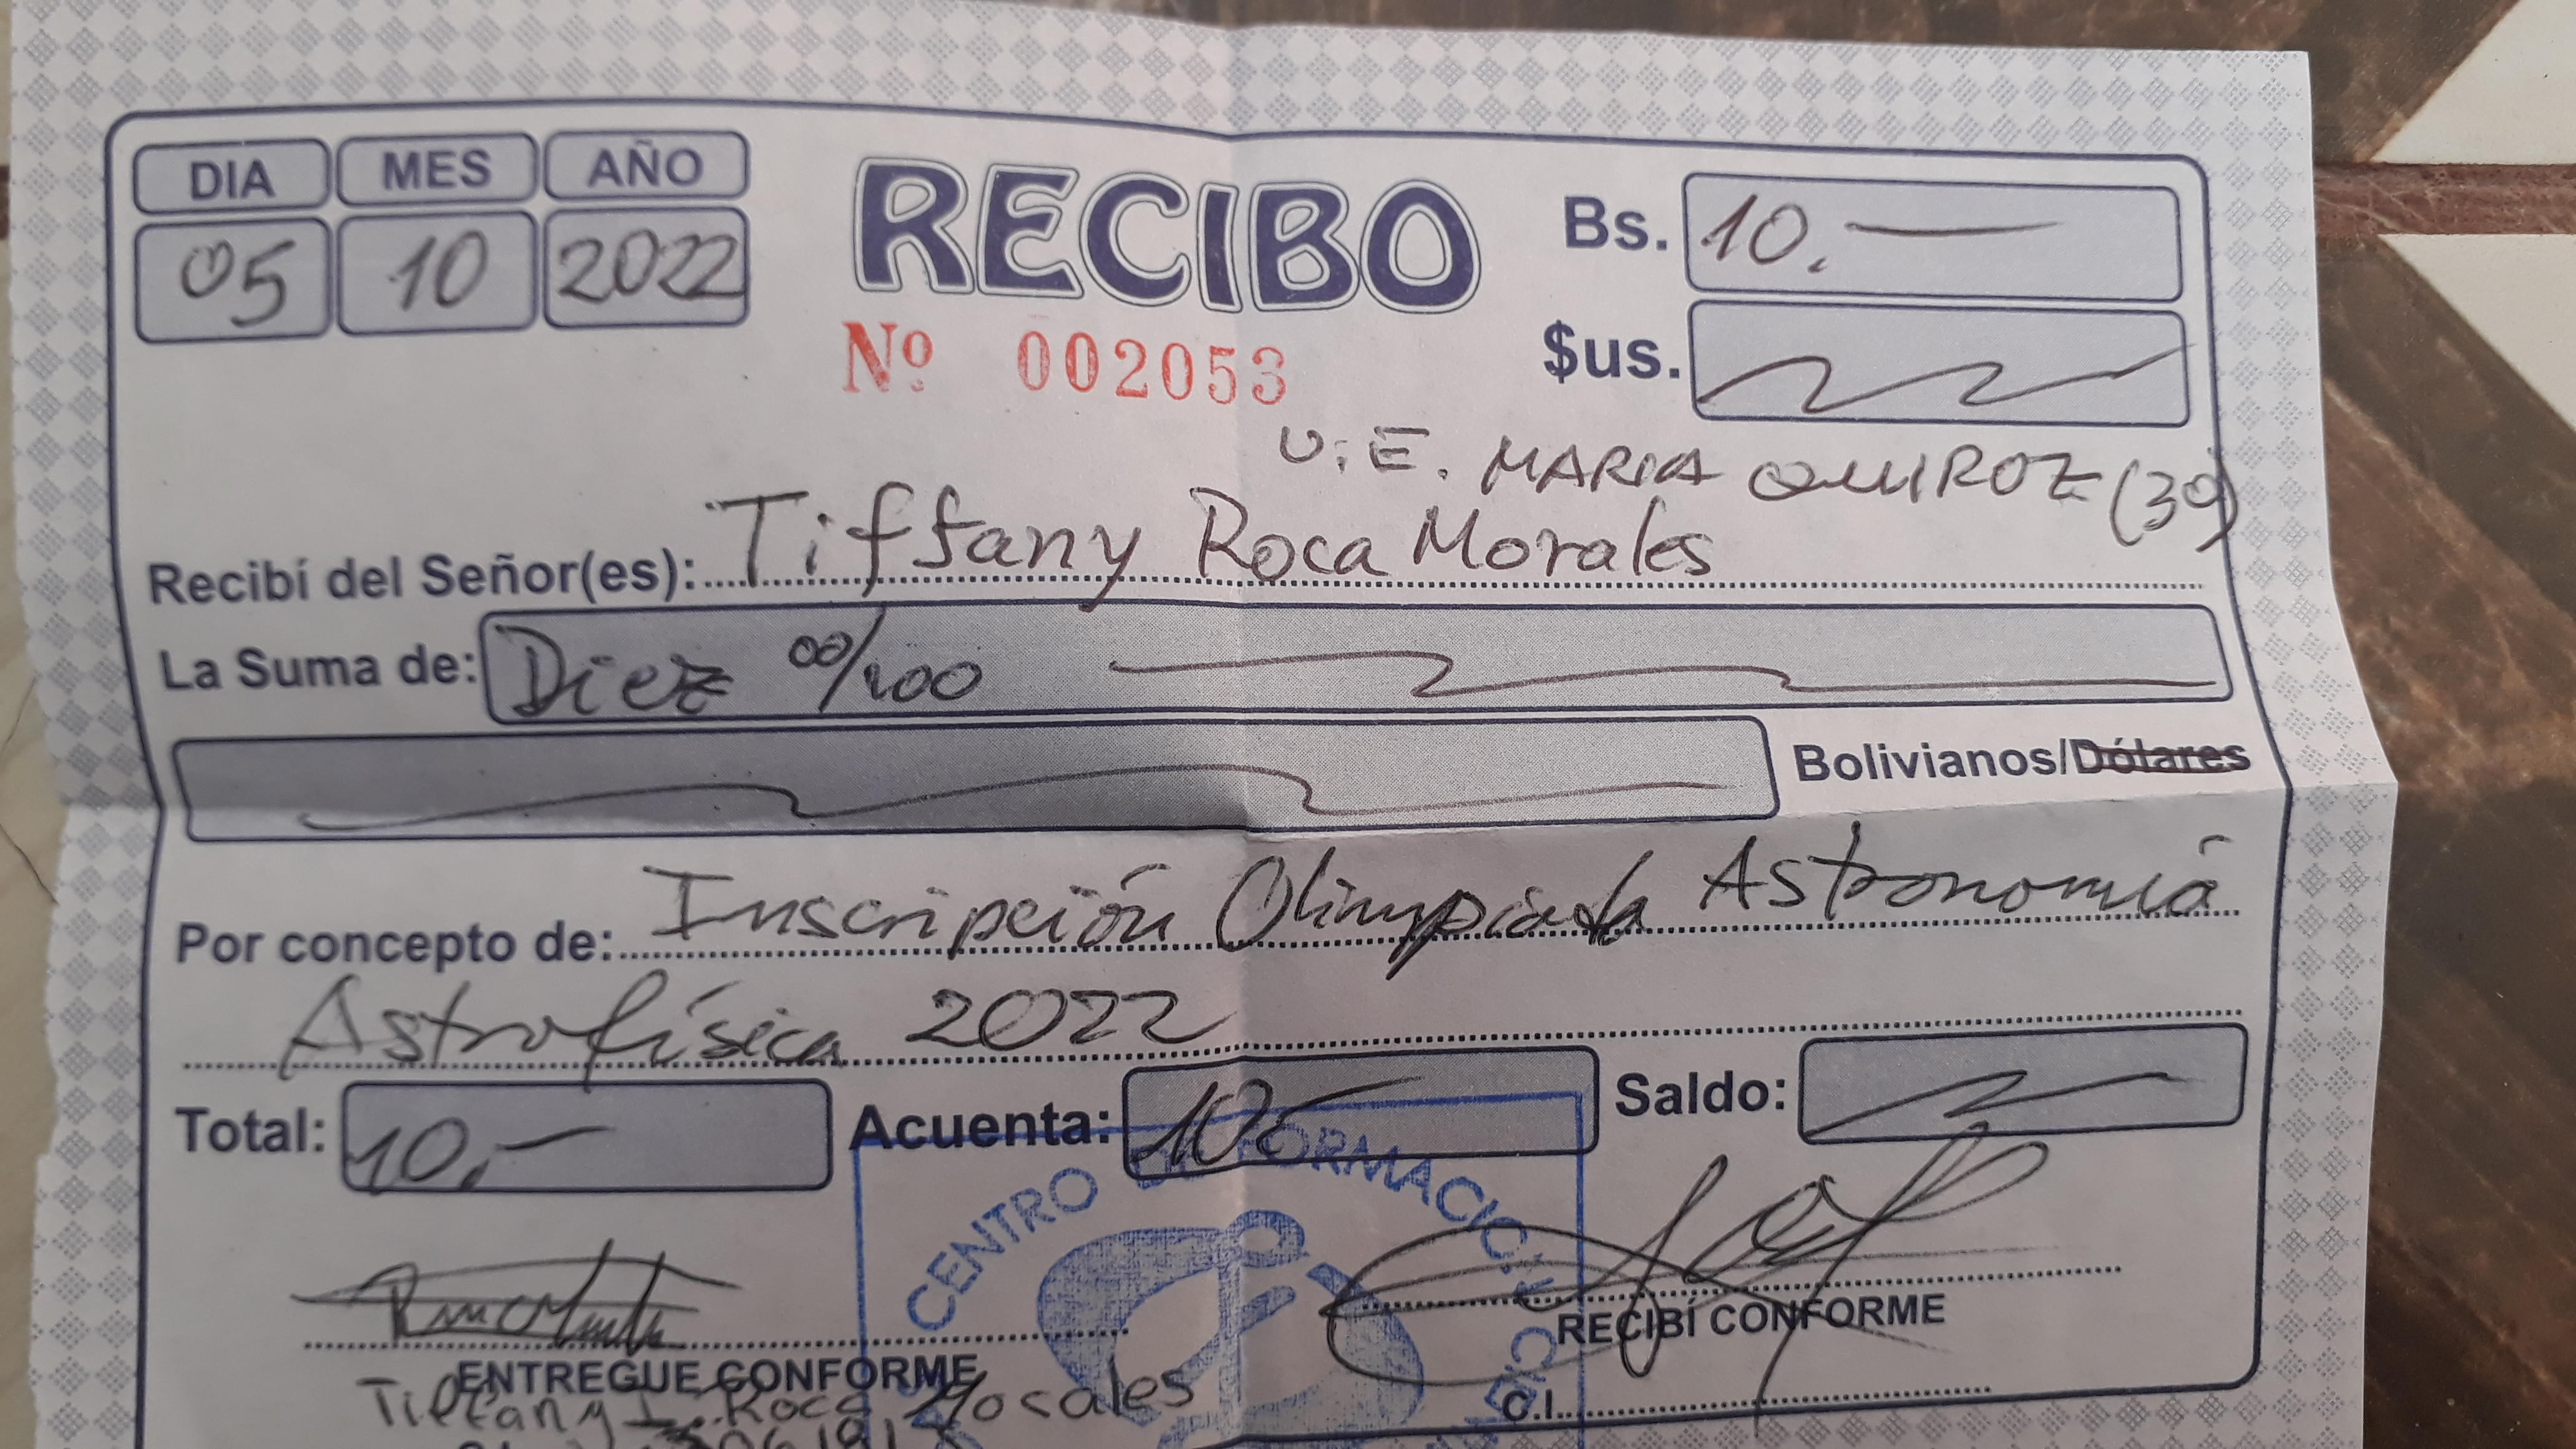 DIA MES AÑO
05 10 2022
RECIBO
Nº 002053
Bs. 10.-
$us.
U.E. MARIA QUIROZ (3º)
Recibí del Señor(es): Tiffany Roca Morales
La Suma de: Diez 00/100
Bolivianos/Dólares
Por concepto de: Inscripción Olimpiada Astronomía
Astrofísica 2022
Total: 10.- Acuenta: 10 Saldo:
CENTRO
ENTREGUE CONFORME
RECIBÍ CONFORME
Tiffany Roca Morales
C.I.